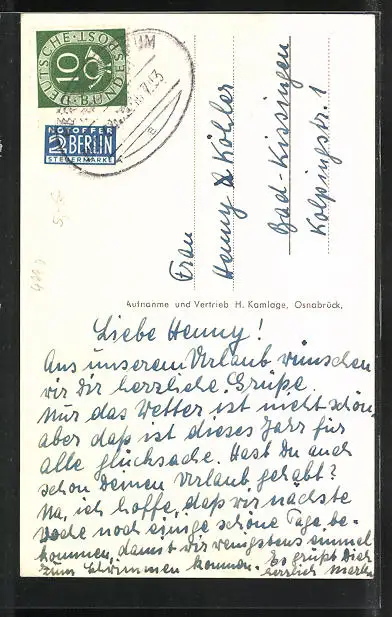 DEUTSCHE BUNDESPOST
10
NOTOPFER
2 BERLIN
STEUERMARKE
Frau
Henny Köhler
Bad-Kissingen
Kolpingstr. 1
Aufnahme und Vertrieb H. Kamlage, Osnabrück,
Liebe Henny!
Aus unserem Urlaub wünschen
wir Dir herzliche Grüße.
Nur das Wetter ist nicht schön,
aber daß ist dieses Jahr für
alle glücksache. Hast Du auch
schon Deinen Urlaub gehabt?
Na, ich hoffe, daß wir nächste
Woche noch einige schöne Tage be-
kommen, damit wir wenigstens einmal
zum schwimmen kommen. Es grüßt Dich
herzlich